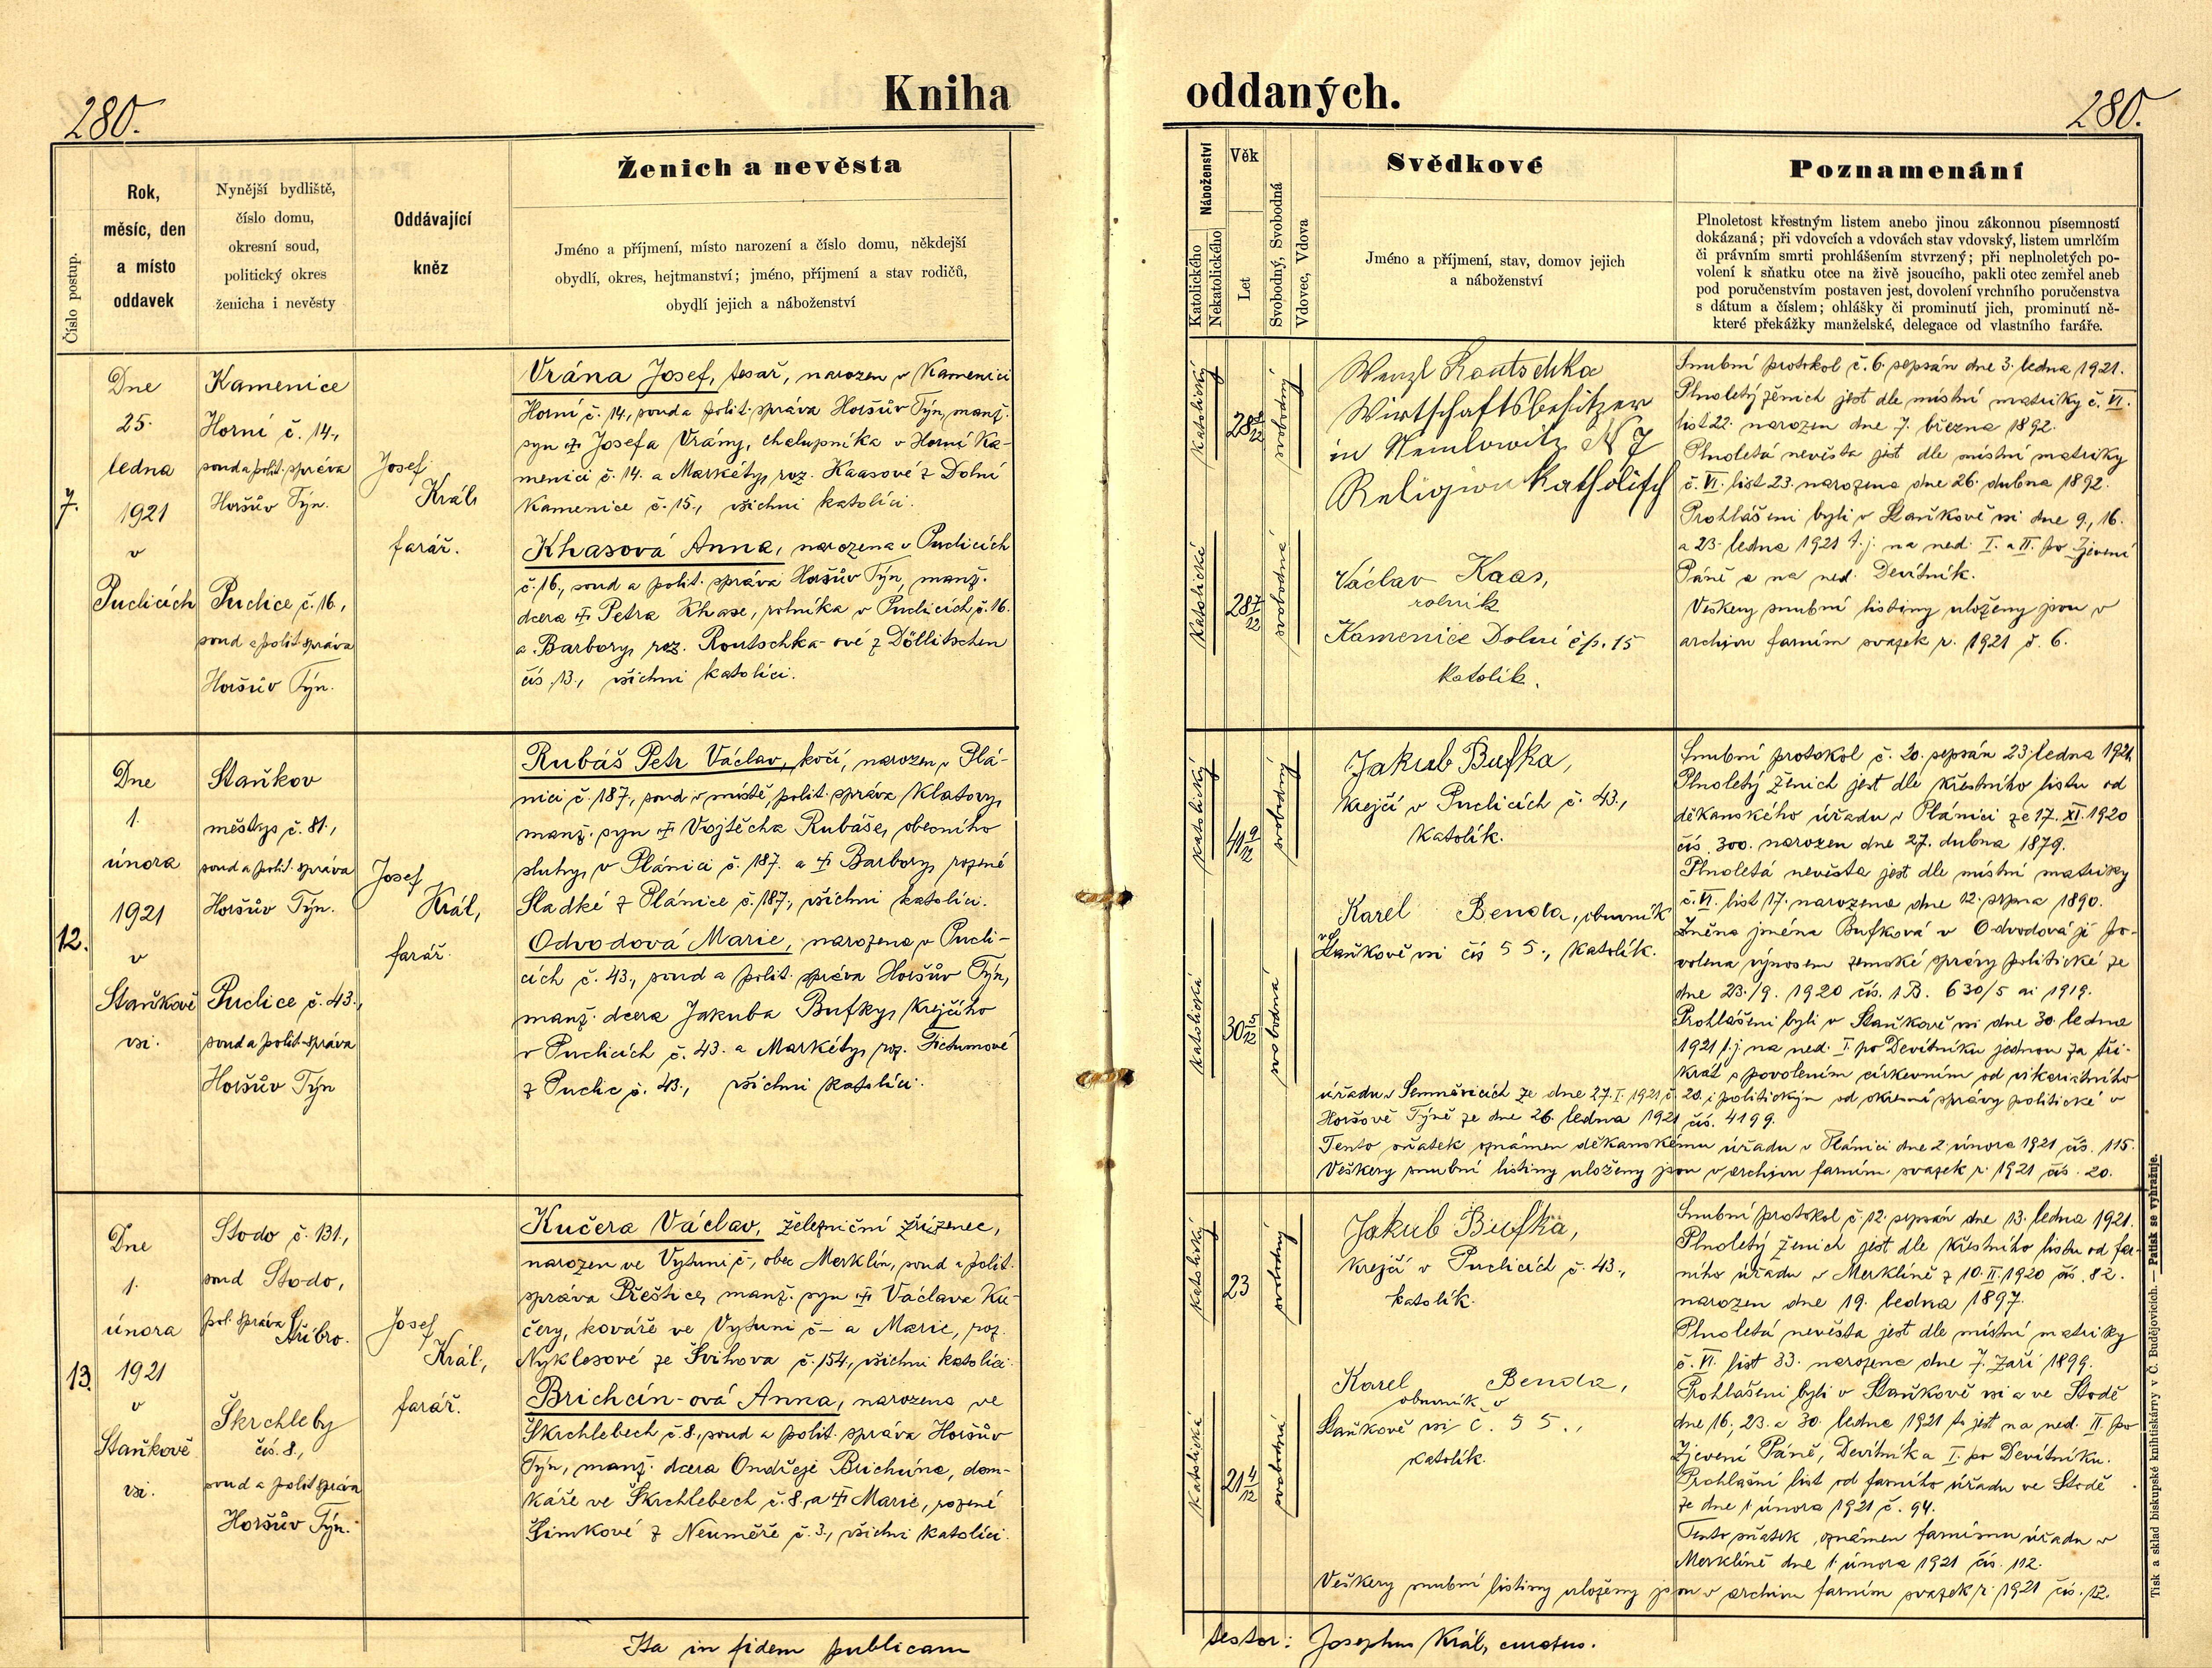 280.
Kniha oddaných.
280.
Číslo postup.
Rok,
měsíc, den
a místo
oddavek
Nynější bydliště,
číslo domu,
okresní soud,
politický okres
ženicha i nevěsty
Oddávající
kněz
Ženich a nevěsta
Jméno a příjmení, místo narození a číslo domu, někdejší
obydlí, okres, hejtmanství; jméno, příjmení a stav rodičů,
obydlí jejich a náboženství
Náboženství
Katolického
Nekatolického
Věk
Let
Svobodný, Svobodná
Vdovec, Vdova
Svědkové
Jméno a příjmení, stav, domov jejich
a náboženství
Poznamenání
Plnoletost křestným listem anebo jinou zákonnou písemností
dokázaná; při vdovcích a vdovách stav vdovský, listem umrlčím
či právním smrti prohlášením stvrzený; při neplnoletých po-
volení k sňatku otce na živě jsoucího, pakli otec zemřel aneb
pod poručenstvím postaven jest, dovolení vrchního poručenstva
s dátum a číslem; ohlášky či prominutí jich, prominutí ně-
které překážky manželské, delegace od vlastního faráře.
7.
Dne
25.
ledna
1921
v
Puclicích
Kamenice
Horní č. 14.,
soud a polit. správa
Horšův Týn.
Puclice č. 16.,
soud a polit. správa
Horšův Týn.
Josef
Král,
farář.
Vrána Josef, tesař, narozen v Kamenici
Horní č. 14., soud a polit. správa Horšův Týn, manž.
syn † Josefa Vrány, chalupníka v Horní Ka-
menici č. 14. a Markéty, roz. Kaasové z Dolní
Kamenice č. 15., všichni katolíci.
Khasová Anna, narozena v Puclicích
č. 16., soud a polit. správa Horšův Týn, manž.
dcera † Petra Khase, rolníka v Puclicích č. 16.
a Barbory, roz. Routschka-ové z Döllitschen
čís. 13., všichni katolíci.
katolický
28 10/12
svobodný
katolická
28 9/12
svobodná
Wenzl Routschka
Wirtschaftsbesitzer
in Nemlowitz N 7
Religion Katholisch
Václav Kaas,
rolník
Kamenice Dolní čp. 15
katolík.
Snubní protokol č. 6. sepsán dne 3. ledna 1921.
Plnoletý ženich jest dle místní matriky č. VI.
list 22. narozen dne 7. března 1892.
Plnoletá nevěsta jest dle místní matriky
č. VI. list 23. narozena dne 26. dubna 1892.
Prohlášeni byli v Staňkově vsi dne 9., 16.
a 23. ledna 1921 t. j. na ned. I. a II. po Zjevení
Páně a na ned. Devítník.
Veškery snubní listiny uloženy jsou v
archivu farním svazek r. 1921 č. 6.
12.
Dne
1.
února
1921
v
Staňkově
vsi.
Staňkov
městys č. 81.,
soud a polit. správa
Horšův Týn.
Puclice č. 43.,
soud a polit. správa
Horšův Týn
Josef
Král,
farář.
Rubáš Petr Václav, kočí, narozen v Plá-
nici č. 187., soud v místě, polit. správa Klatovy,
manž. syn † Vojtěcha Rubáše, obecního
sluhy, v Plánici č. 187. a † Barbory, rozené
Sladké z Plánice č. 187., všichni katolíci.
Odvodová Marie, narozena v Pucli-
cích č. 43., soud a polit. správa Horšův Týn,
manž. dcera Jakuba Bufky, krejčího
v Puclicích č. 43. a Markéty, roz. Tichumové
z Puclic č. 43., všichni katolíci.
katolický
41 9/12
svobodný
katolická
30 5/12
svobodná
Jakub Bufka,
krejčí v Puclicích č. 43.,
katolík.
Karel Benda, obuvník
ve Staňkově vsi čís 55., katolík.
Snubní protokol č. 20. sepsán 23. ledna 1921
Plnoletý ženich jest dle křestního listu od
děkanského úřadu v Plánici ze 17. XI. 1920
čís. 300. narozen dne 27. dubna 1879.
Plnoletá nevěsta jest dle místní matriky
č. VI. list 17. narozena dne 12. srpna 1890.
Změna jména Bufková v Odvodová jí po-
volena výnosem zemské správy politické ze
dne 23./9. 1920 čís. 1 B. 630/5 ai 1919.
Prohlášeni byli v Staňkově vsi dne 30. ledna
1921 t. j. na ned. I. po Devítníku jednou za tři-
krát s povolením církevním od vikariatního
úřadu v Semněvicích ze dne 27. I. 1921 č. 20. i politickým od okresní správy politické v
Horšově Týně ze dne 26. ledna 1921 čís. 4199.
Tento sňatek oznámen děkanskému úřadu v Plánici dne 2. února 1921 čís. 115.
Veškery snubní listiny uloženy jsou v archivu farním svazek r. 1921 čís. 20.
13.
Dne
1.
února
1921
v
Staňkově
vsi.
Stodo č. 131.,
soud Stodo,
pol. správa Stříbro.
Škrchleby
čís. 8.,
soud a polit. správa
Horšův Týn.
Josef
Král,
farář.
Kučera Václav, železniční zřízenec,
narozen ve Vytuni č., obec Merklín, soud a polit.
správa Přeštice, manž. syn † Václava Ku-
čery, kováře ve Vytuni č – a Marie, roz.
Nyklesové ze Švihova č. 154., všichni katolíci.
Brichcín-ová Anna, narozena ve
Škrchlebech č. 8., soud a polit. správa Horšův
Týn, manž. dcera Ondřeje Brichcína, dom-
káře ve Škrchlebech č. 8. a † Marie, rozené
Šimkové z Neuměře č. 3., všichni katolíci.
katolický
23
svobodný
katolická
21 4/12
svobodná
Jakub Bufka,
krejčí v Puclicích č. 43.,
katolík.
Karel Benda,
obuvník v
Staňkově vsi č. 55.,
katolík.
Snubní protokol č 12. sepsán dne 13. ledna 1921.
Plnoletý ženich jest dle křestního listu od far-
ního úřadu v Merklíně z 10. II. 1920 čís. 82.
narozen dne 19. ledna 1897.
Plnoletá nevěsta jest dle místní matriky
č. VI. list 33. narozena dne 7. září 1899.
Prohlášeni byli v Staňkově vsi a ve Stodě
dne 16., 23. a 30. ledna 1921 to jest na ned. II. po
Zjevení Páně, Devítníka a I. po Devítníku.
Prohlašní list od farního úřadu ve Stodě
ze dne 1. února 1921 č. 94.
Tento sňatek oznámen farnímu úřadu v
Merklíně dne 1. února 1921 čís. 112.
Veškery snubní listiny uloženy jsou v archivu farním svazek r. 1921 čís. 12.
Ita in fidem publicam
testor: Josephus Král, curatus.
Tisk a sklad biskupské knihtiskárny v Č. Budějovicích. — Patisk se vyhražuje.